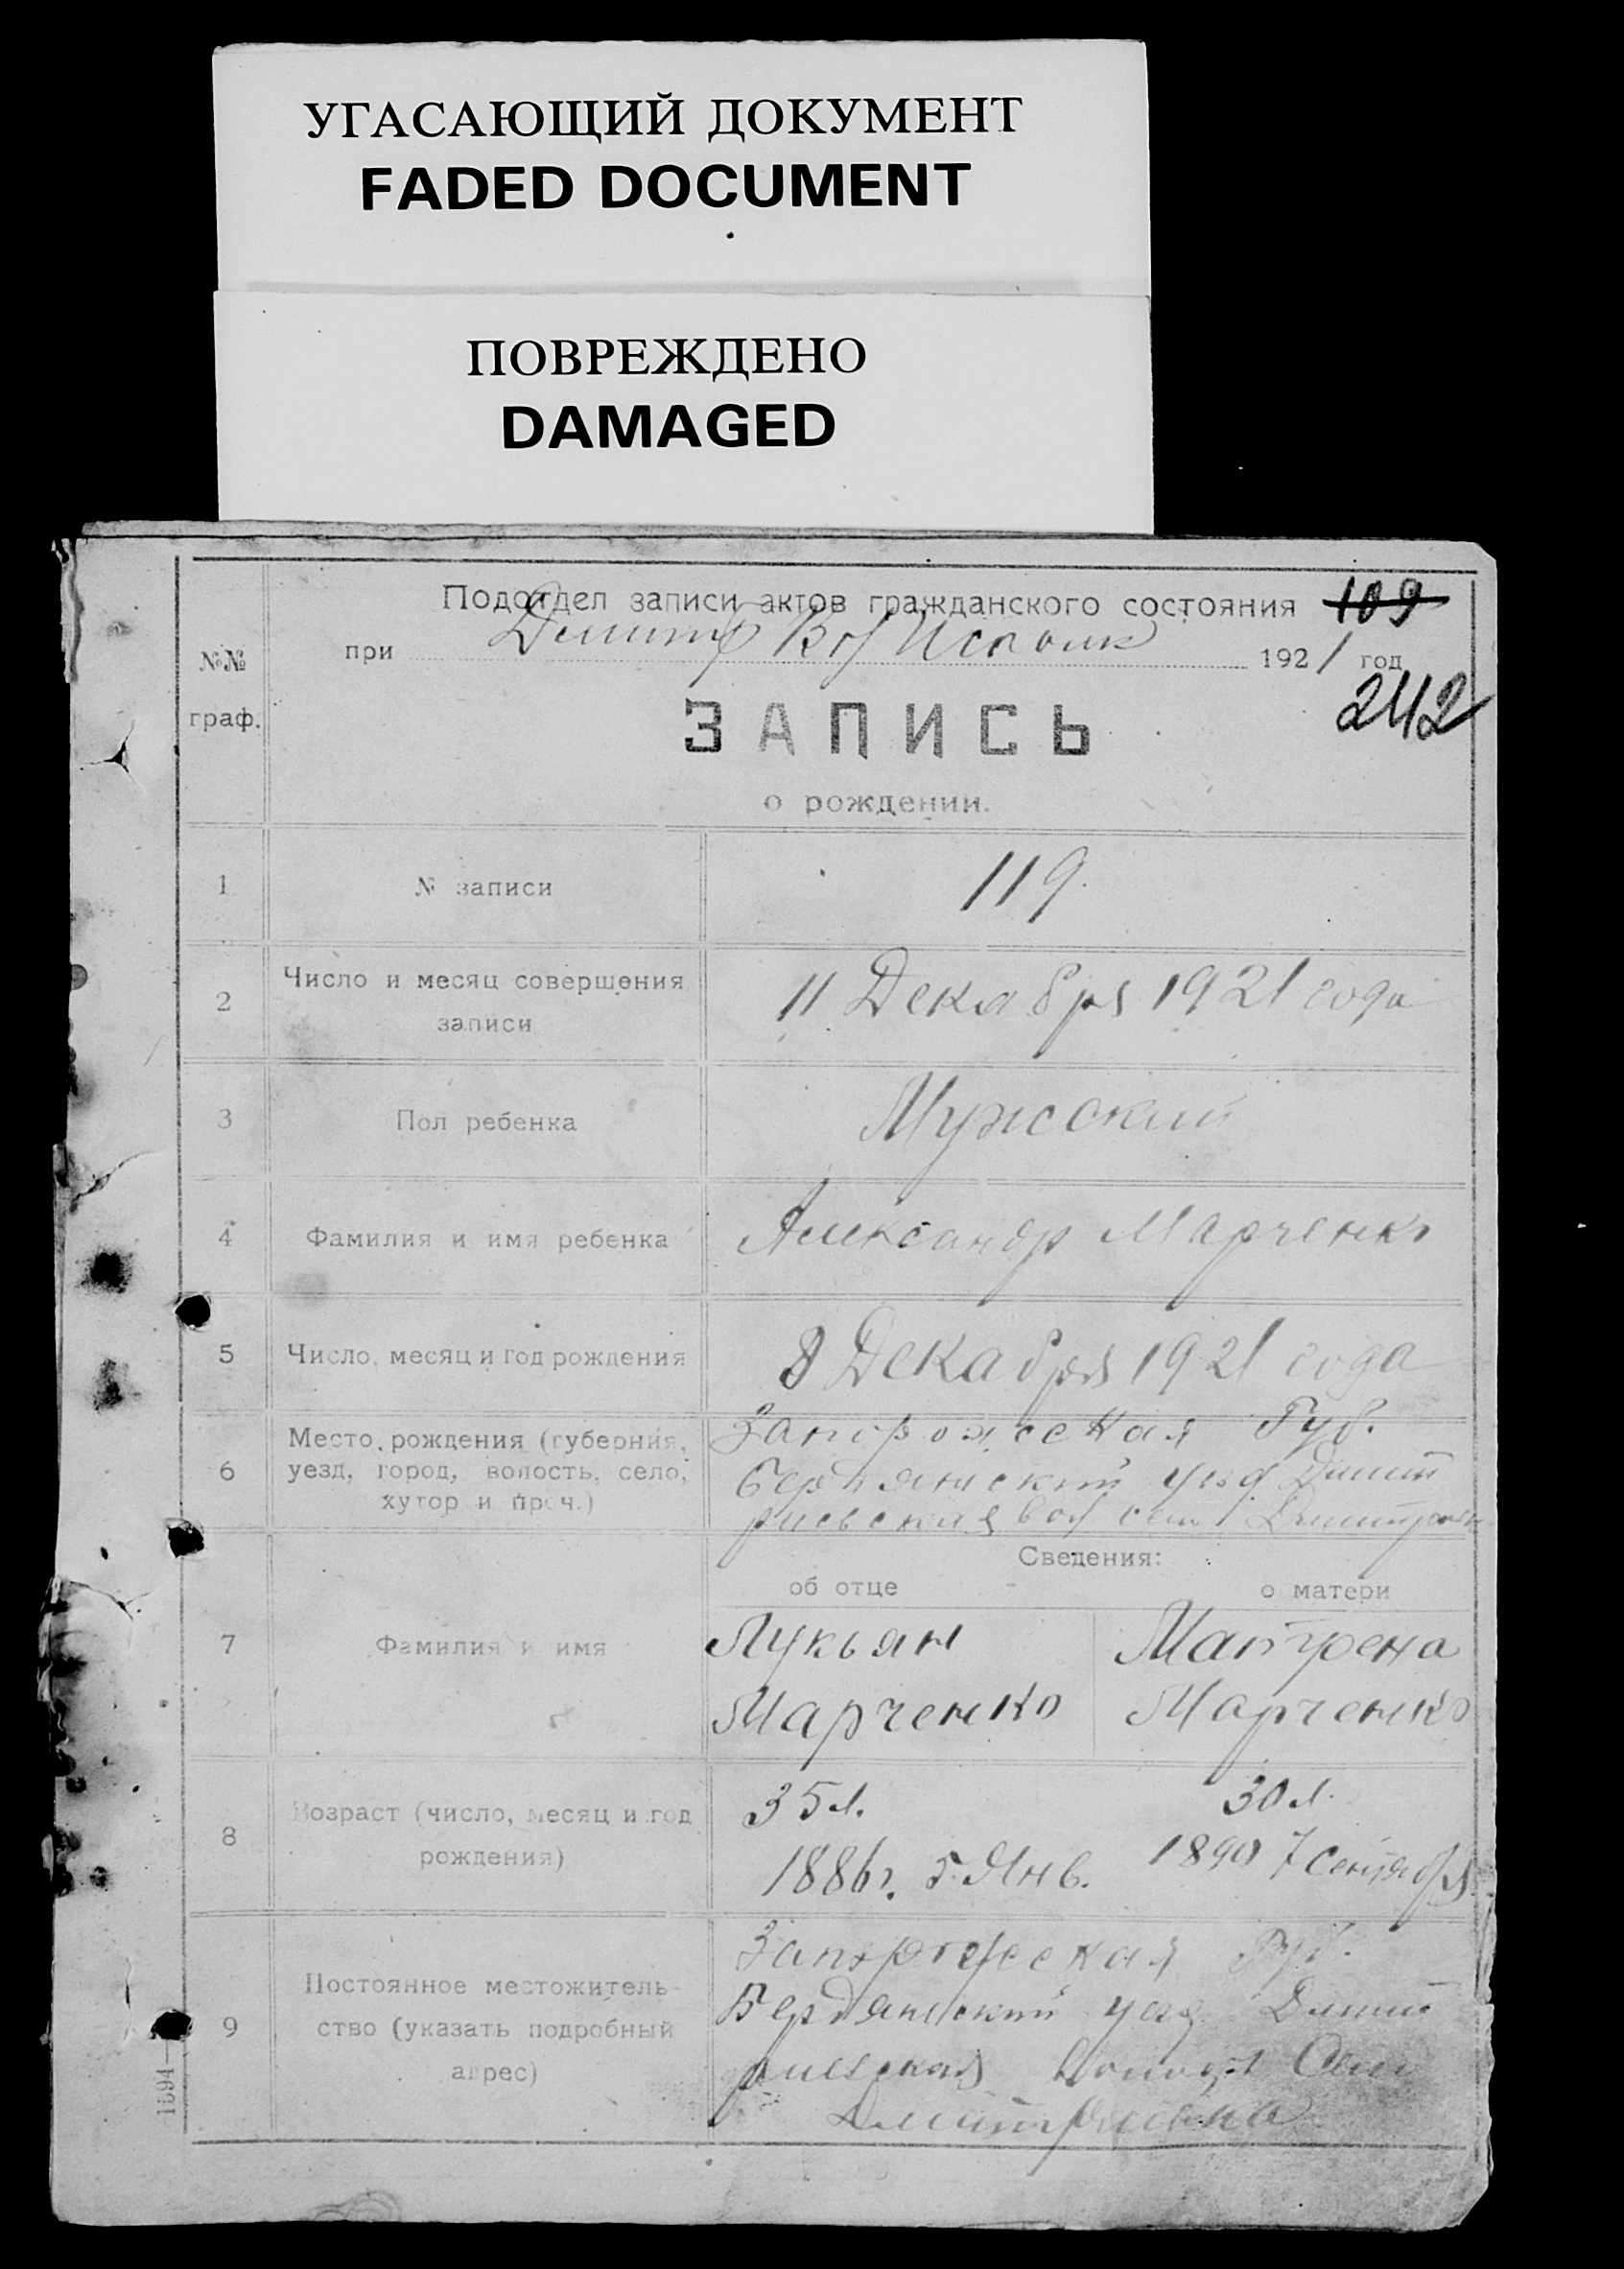 УГАСАЮЩИЙ ДОКУМЕНТ
FADED DOCUMENT
ПОВРЕЖДЕНО
DAMAGED
Подотдел записи актов гражданского состояния 109
при Димитр Вол Исполк 1921 год
242
№№
граф.
ЗАПИСЬ
о рождении.
1 № записи 119
2 Число и месяц совершения
записи
11 Декабря 1921 года
3 Пол ребенка Мужской
4 Фамилия и имя ребенка Александр Марченко
5 Число, месяц и год рождения 8 Декабря 1921 года
6 Место рождения (губерния,
уезд, город, волость, село,
хутор и проч.)
Запорожская Губ.
Бердянский уезд Димит
риевская вол село
Сведения:
об отце о матери
7 Фамилия и имя
Лукьян Матрена
Марченко Марченко
8 Возраст (число, месяц и год
рождения)
35 л. 30 л.
1886 г. 5 Янв. 1890 7 Сентября
9 Постоянное местожитель-
ство (указать подробный
адрес)
Запорожская Губ.
Бердянский уезд Димит
риевская Село
Димитриевка
1594